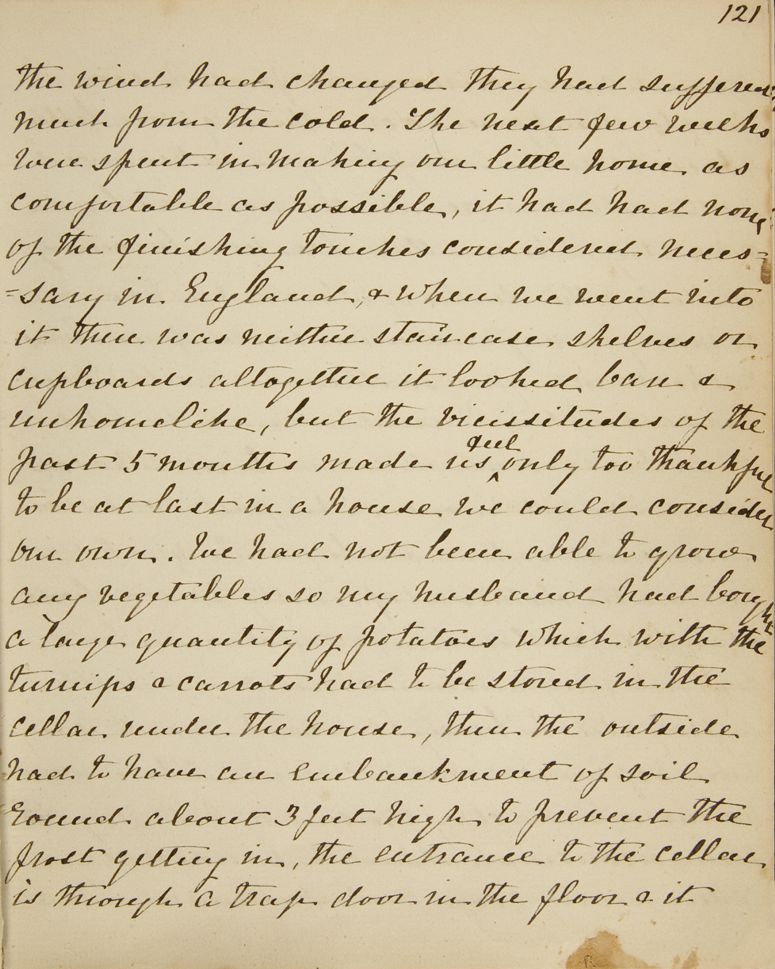 121
the wind had changed they had suffered
much from the cold. The next few weeks
were spent in making our little home as
comfortable as possible, it had had none
of the finishing touches considered neces=
=sary in England, & when we went into
it there was neither staircase shelves or
cupboards altogether it looked bare &
unhomelike, but the vicissitudes of the
feel
past 5 months made us ^ only too thankful
to be at last in a house we could consider
our own. We had not been able to grow
any vegetables so my husband had bought
a large quantity of potatoes which with the
turnips & carrots had to be stored in the
cellar under the house, then the outside
had to have an embankment of soil
round about 3 feet high to prevent the
frost getting in, the entrance to the cellar
is through a trap door in the floor & it